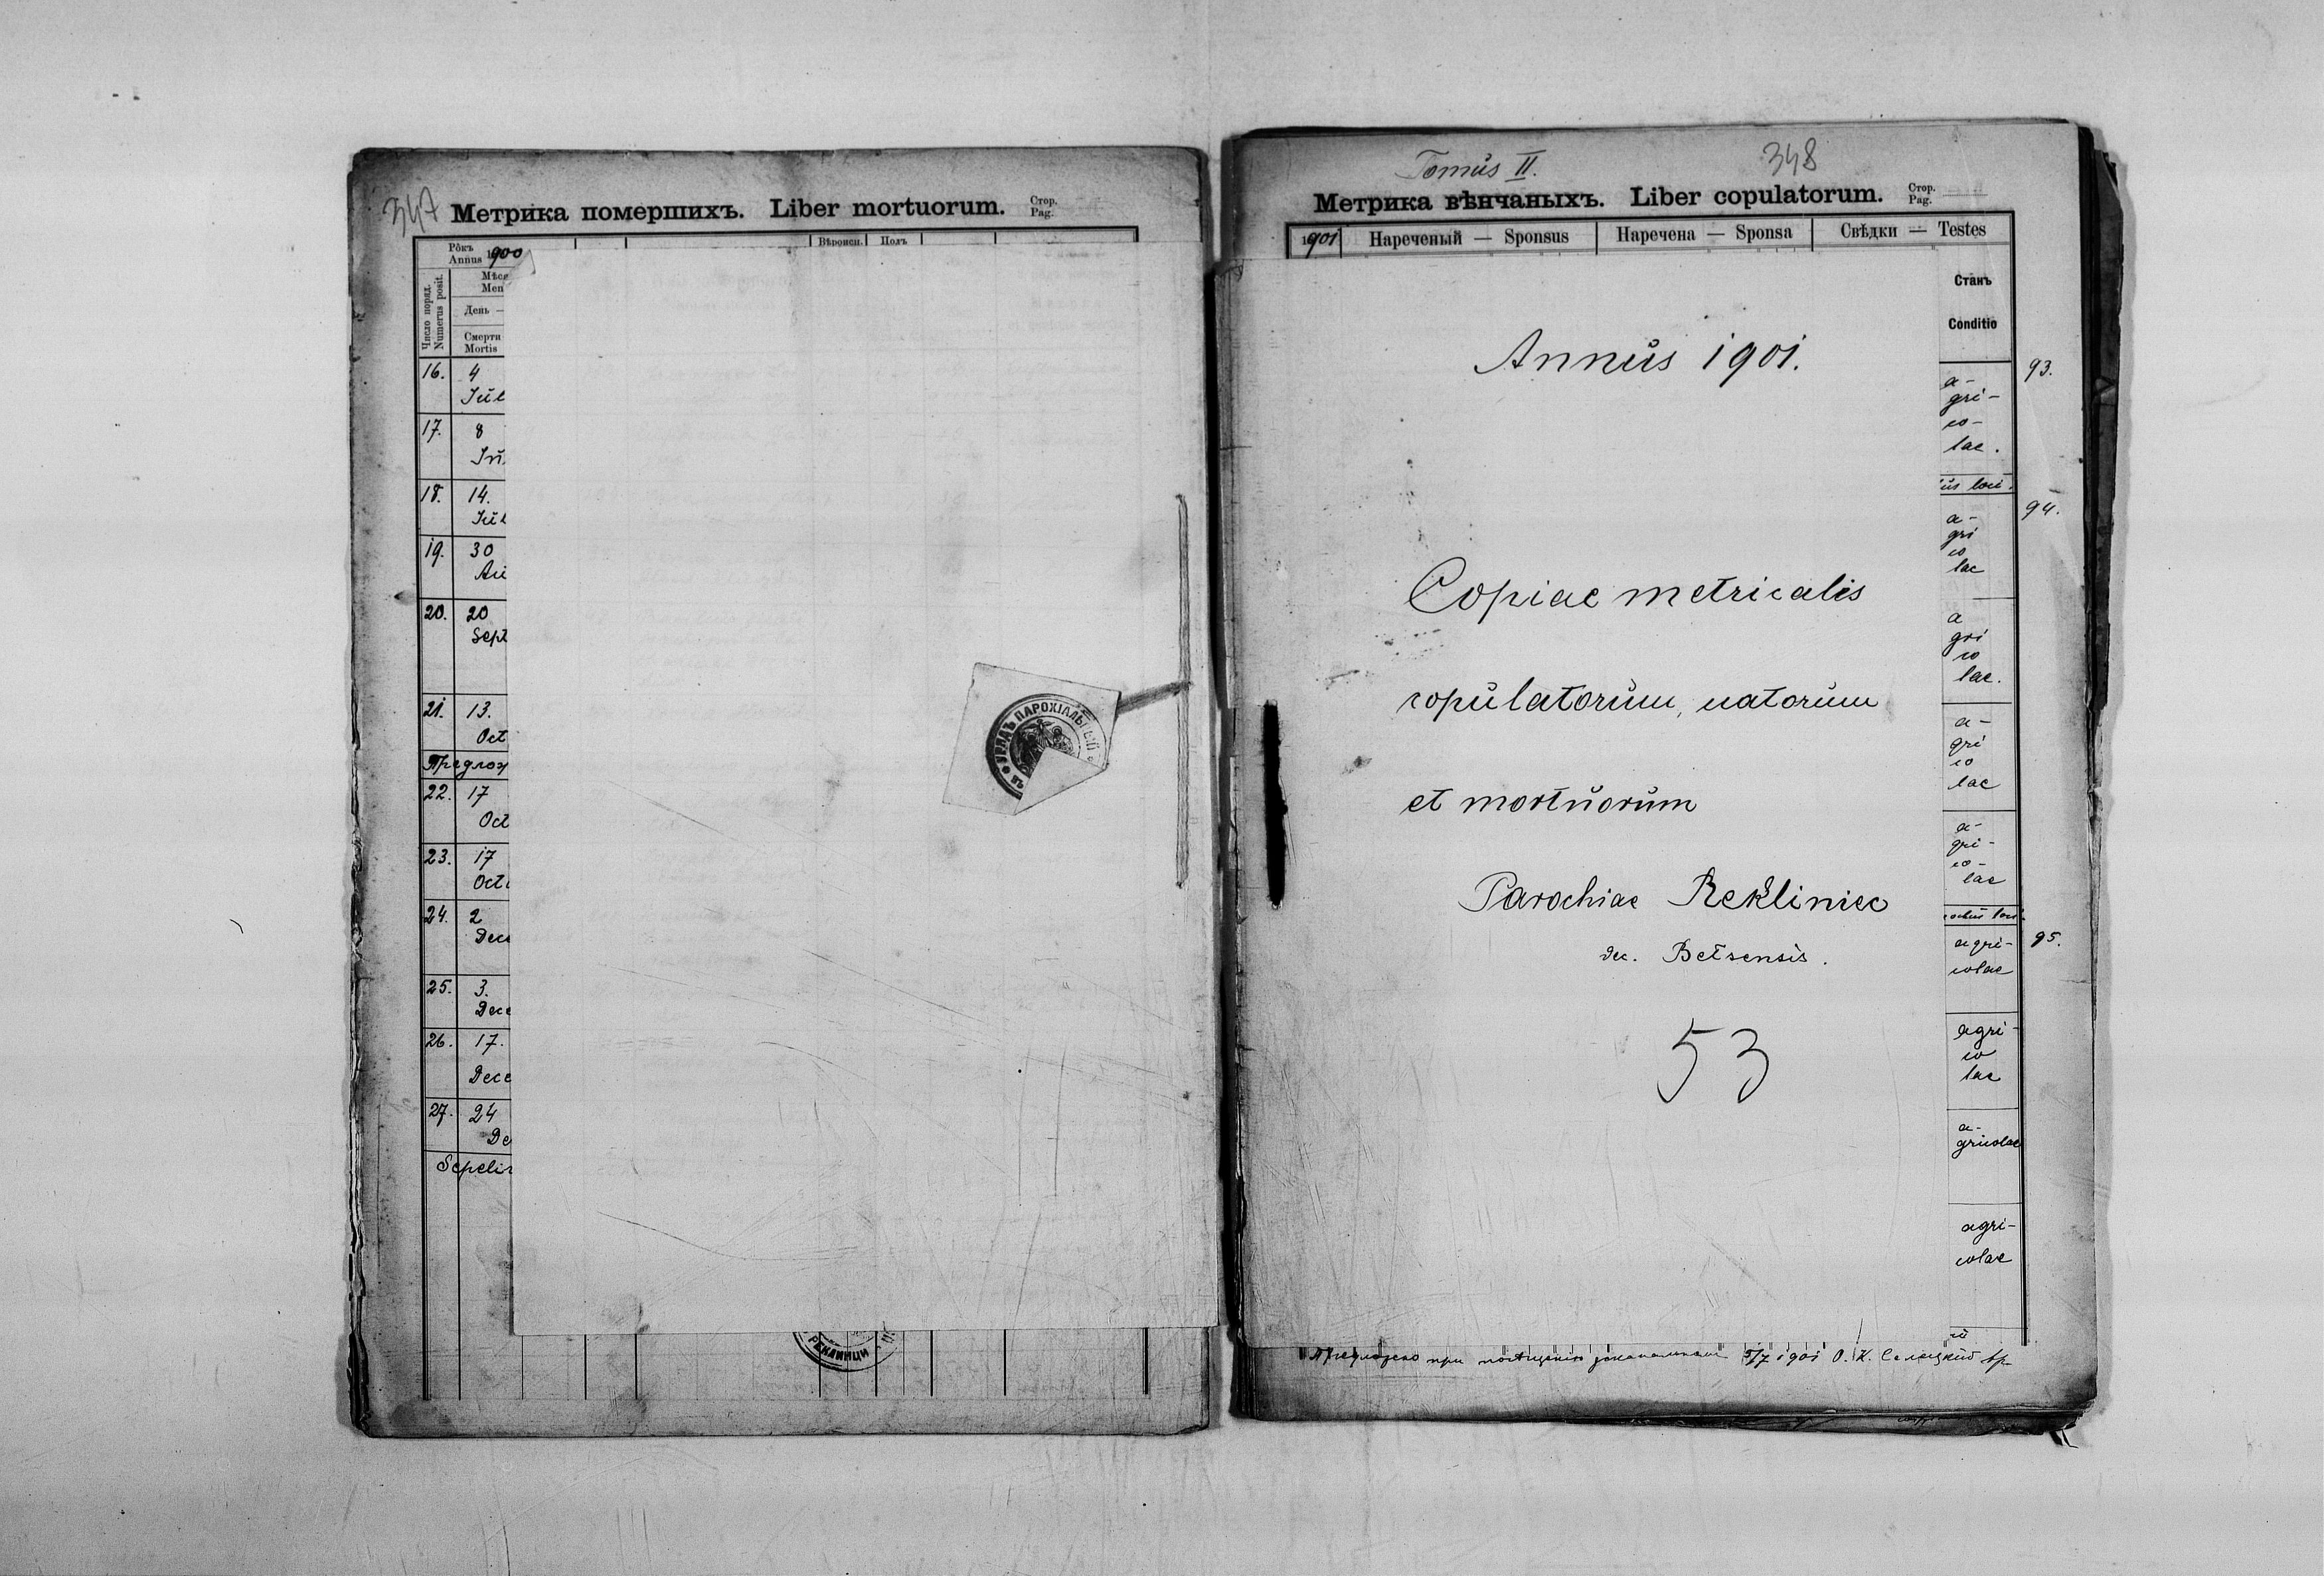 347
Метрика помершихъ. Liber mortuorum. Стор. Pag.
Рôкъ
Annus 1900
Вѣроисп. Полъ
Число поряд.
Numerus posit.
Мѣся
Men
День —
Смерти
Mortis
16. 4
Iŭl
17. 8
18. 14.
Iŭl
19. 30
Aŭ
20. 20
Sept
21. 13.
Oct
Предлож
22. 17
Oct
23. 17
Oct
24. 2
Dece
25. 3.
Dece
26. 17.
Dece
27. 24
De
Sepelir
УРЯДЪ ПАРОХІАЛЬНЫЙ
ВЪ
РЕКЛИНЦИ
Tomŭs II.
348
Метрика вѣнчаныхъ. Liber copulatorum. Стор. Pag.
1901 Нареченый — Sponsus Наречена — Sponsa Свѣдки — Testes
Станъ
Conditio
Annŭs 1901.
Copiae metricalis
copŭlatorŭm, natorŭm
et mortŭorŭm
Parochiae Rekliniec
dec. Belzensis.
53
a-
gri-
co-
lae.
93.
ŭs loci.
a-
gri
co
lae
94.
a
gri
co
lae.
a-
gri
co
lae
a-
gri-
co-
lae
agri-
colae
95.
agri-
co
lae
a-
gricolae
agri-
colae
при 5/7 1901 О. К.